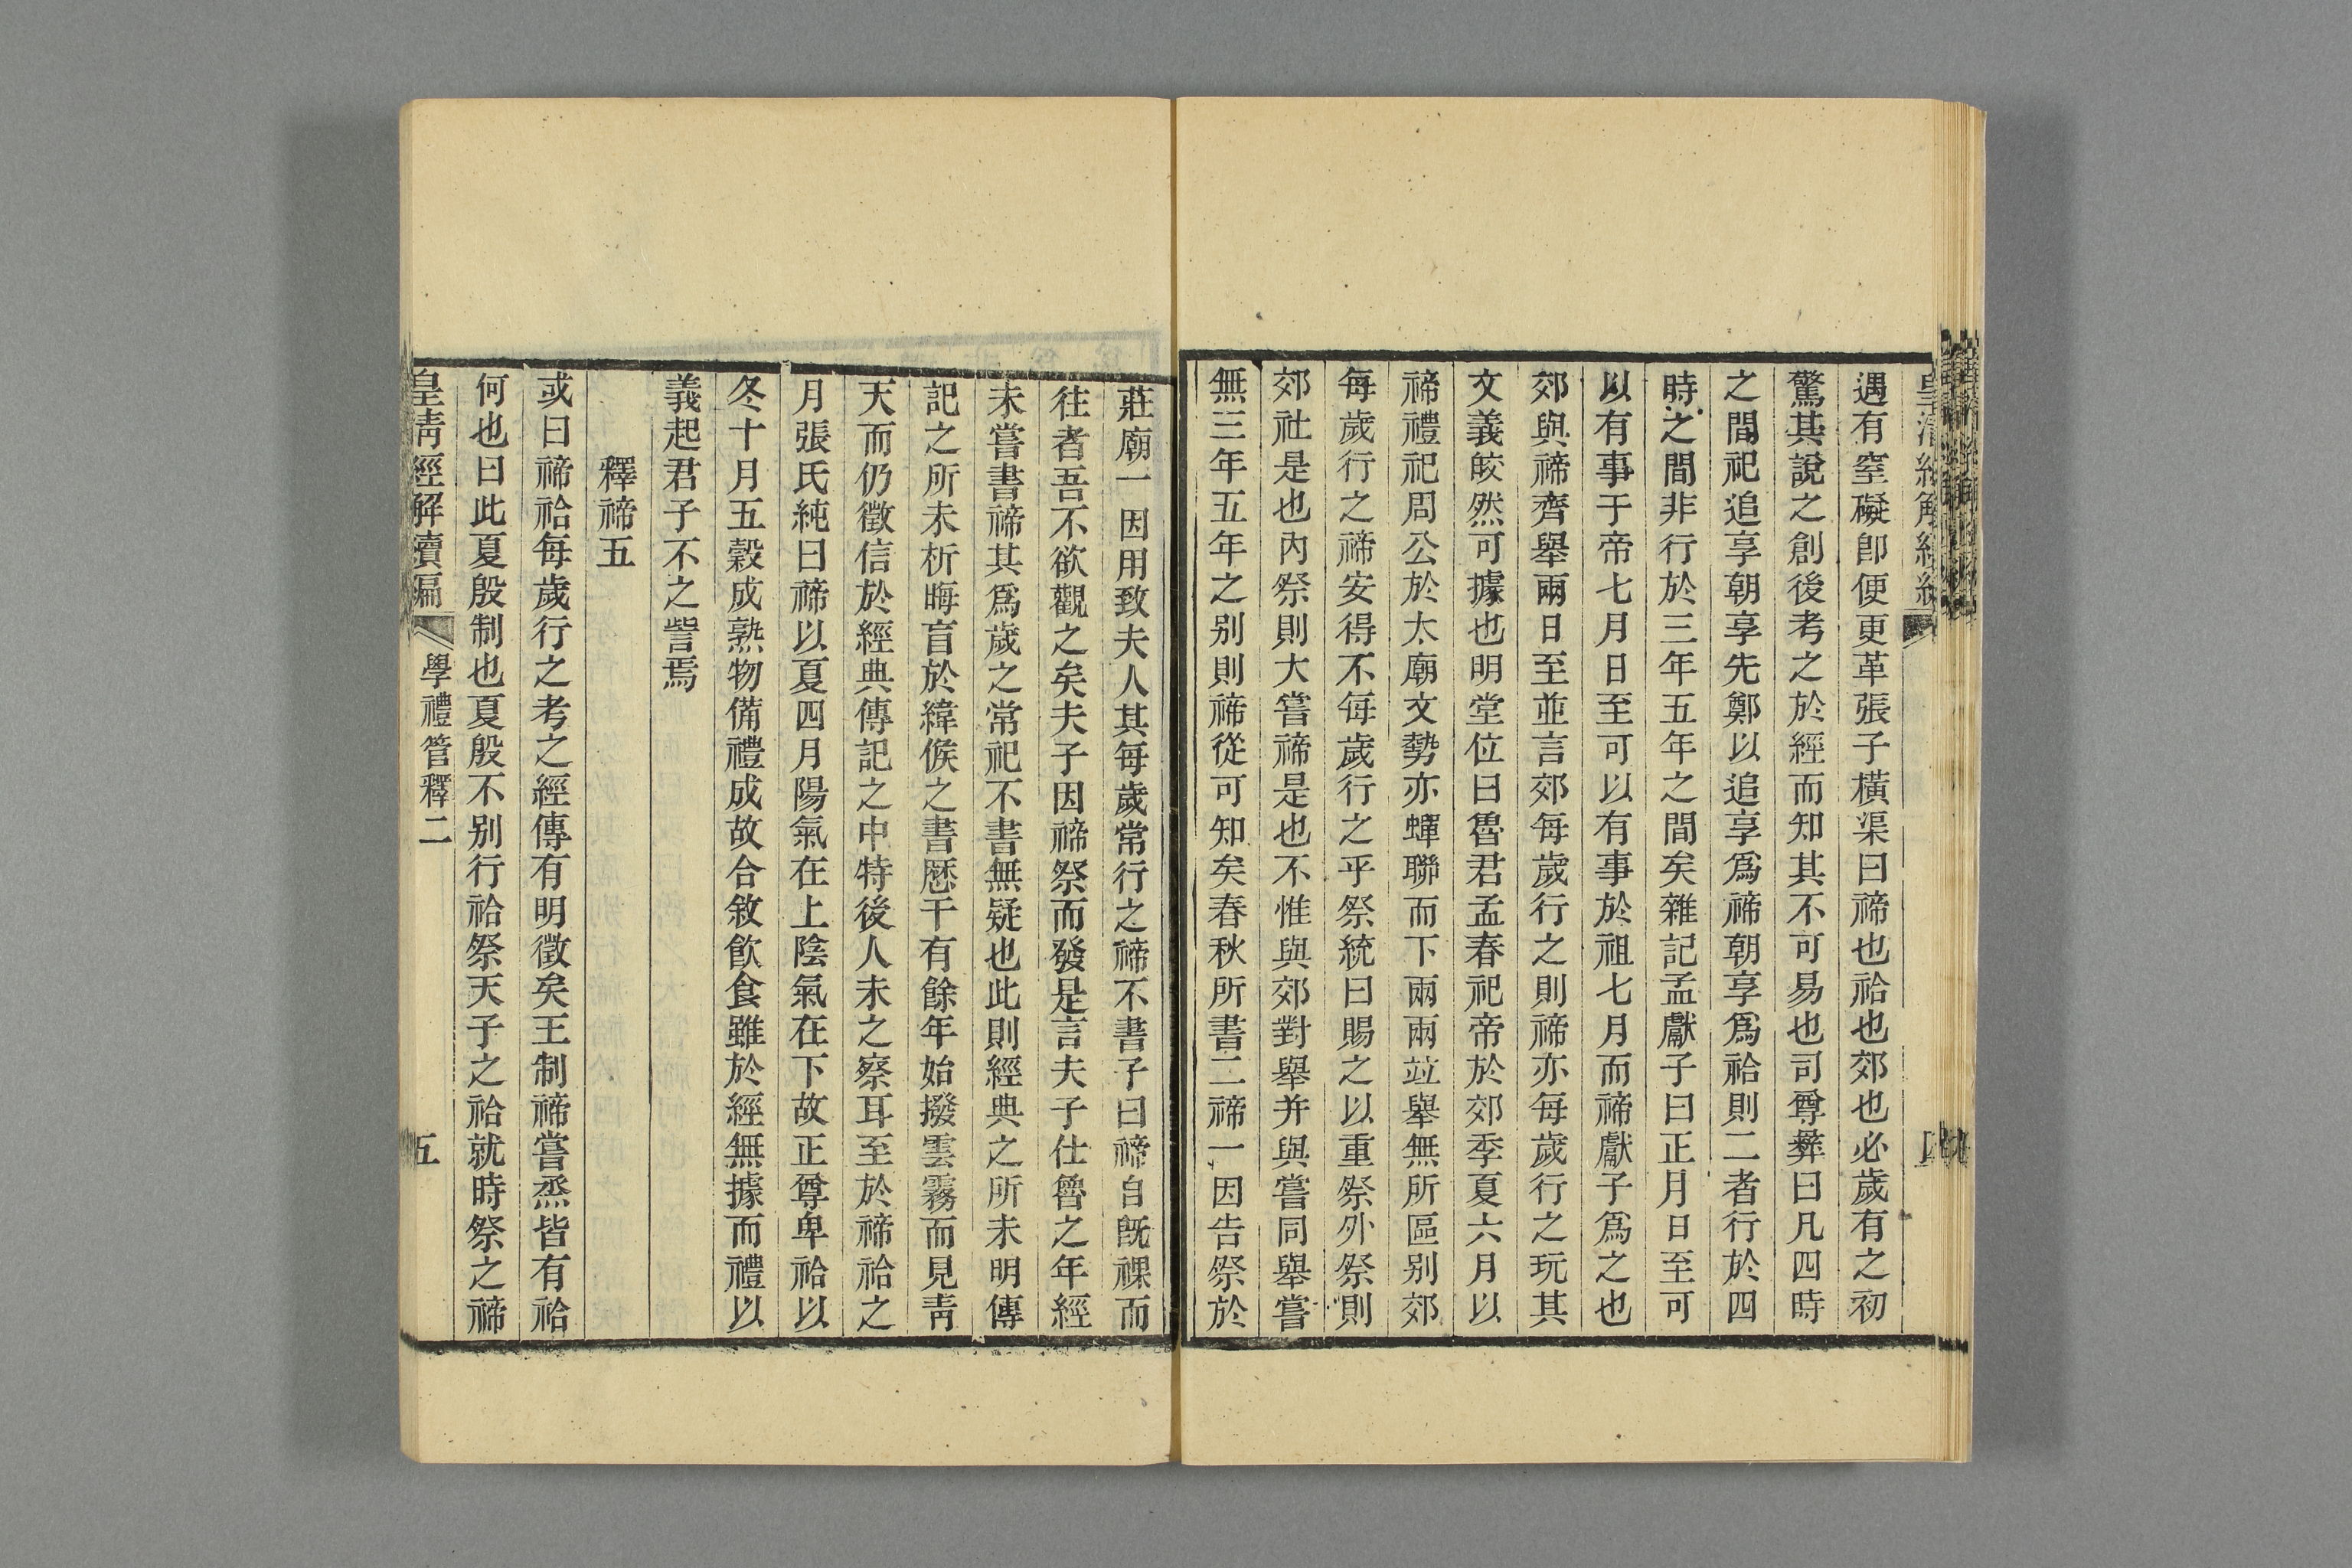 遇有窒礙卽便更革張子橫渠曰禘也祫也郊也必歲有之初
驚其說之創後考之於經而知其不可易也司尊彝曰凡四時
之間祀追享朝享先鄭以追享爲禘朝享爲祫則二者行於四
時之間非行於三年五年之間矣雜記孟獻子曰正月日至可
以有事于帝七月日至可以有事於祖七月而禘獻子爲之也
郊與禘齊舉兩日至並言郊每歲行之則禘亦每歲行之玩其
文義皎然可據也明堂位曰魯君孟春祀帝於郊季夏六月以
禘禮祀周公於太廟文勢亦蟬聯而下兩兩竝舉無所區别郊
每歲行之禘安得不每歲行之乎祭統曰賜之以重祭外祭則
郊社是也內祭則大嘗禘是也不惟與郊對舉并與嘗同舉嘗
無三年五年之别則禘從可知矣春秋所書二禘一因告祭於
莊廟一因用致夫人其每歲常行之禘不書子曰禘自旣祼而
往者吾不欲觀之矣夫子因禘祭而發是言夫子仕魯之年經
未嘗書禘其爲歲之常祀不書無疑也此則經典之所未明傳
記之所未析晦盲於緯候之書歷千有餘年始撥雲霧而見靑
天而仍徵信於經典傳記之中特後人未之察耳至於禘祫之
月張氏純曰禘以夏四月陽氣在上陰氣在下故正尊卑祫以
冬十月五穀成熟物備禮成故合敘飮食雖於經無據而禮以
義起君子不之訾焉
釋禘五
或曰禘祫每歲行之考之經傳有明徵矣王制禘嘗烝皆有祫
何也曰此夏殷制也夏殷不别行祫祭天子之祫就時祭之禘
皇淸經解續編
學禮管釋二
五